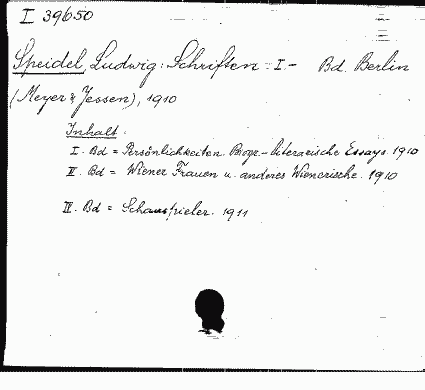 I 39650
Speidel, Ludwig: Schriften I- Bd. Berlin
(Meyer & Jessen), 1910
Inhalt.
I. Bd = Persönlichkeiten. Biogr.-literarische Essays. 1910
II. Bd = Wiener Frauen u. anderes Wienerische. 1910
IV. Bd = Schauspieler. 1911